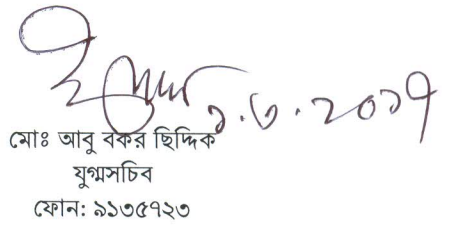 ১.৩.২০১৭
মোঃ আবু বকর ছিদ্দিক
যুগ্মসচিব
ফোন: ৯১৩৫৭২৩